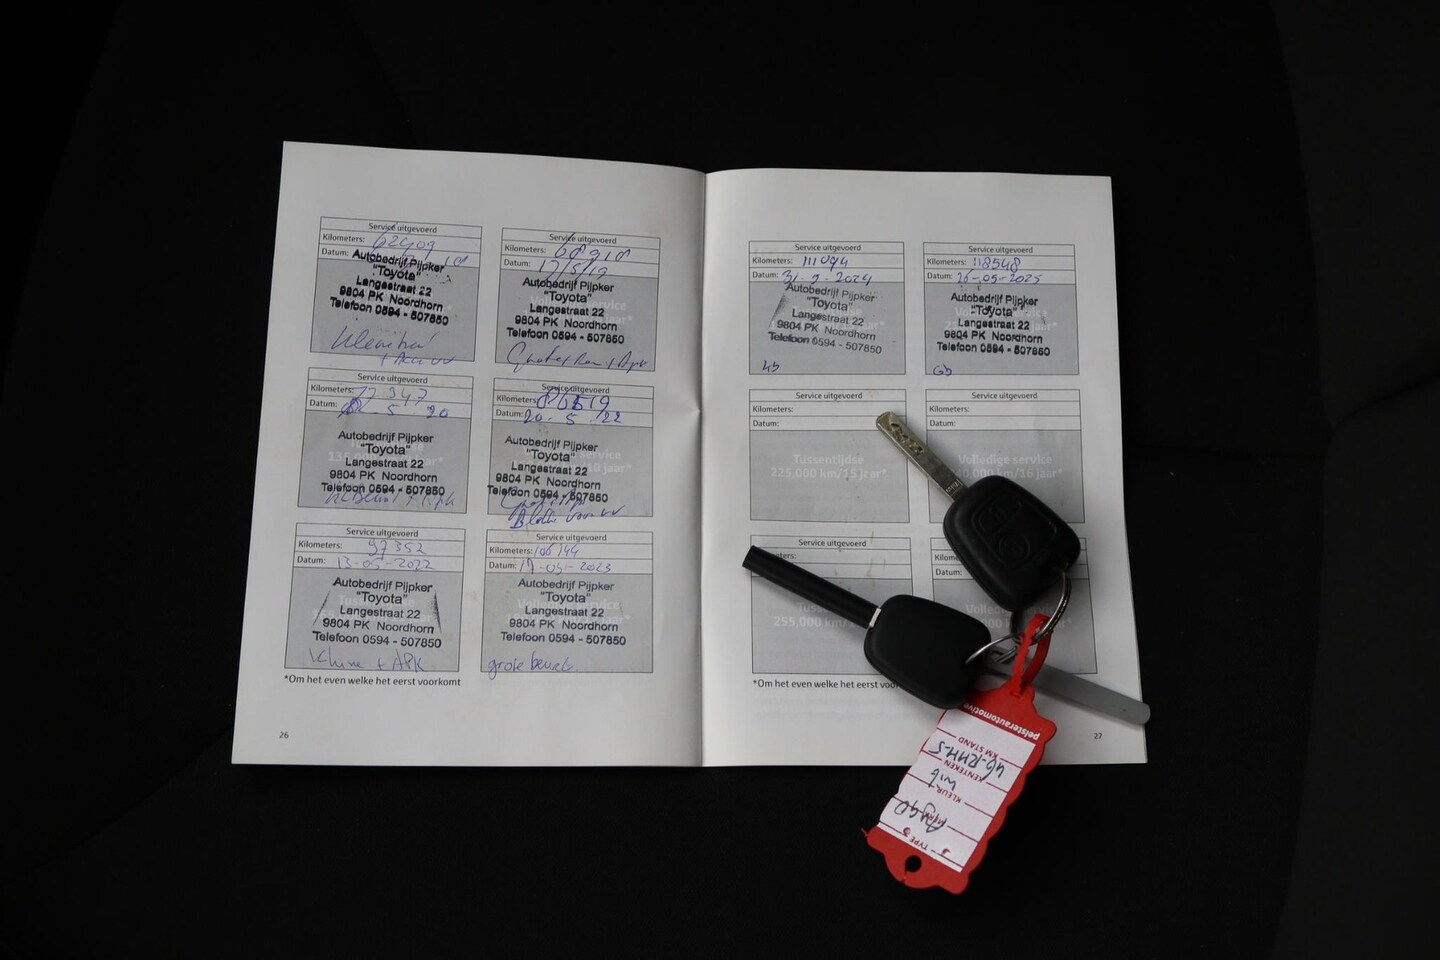 Service uitgevoerd
Kilometers: 62409
Datum:
Autobedrijf Pijpker
"Toyota"
Langestraat 22
9804 PK Noordhorn
Telefoon 0594 - 507850
Service uitgevoerd
Kilometers: 68918
Datum: 17/5/19
Autobedrijf Pijpker
"Toyota"
Langestraat 22
9804 PK Noordhorn
Telefoon 0594 - 507850
Service uitgevoerd
Kilometers: 77347
Datum: 5 20
Autobedrijf Pijpker
"Toyota"
Langestraat 22
9804 PK Noordhorn
Telefoon 0594 - 507850
Service uitgevoerd
Kilometers:
Datum: 20. 5. 22
Autobedrijf Pijpker
"Toyota"
Langestraat 22
9804 PK Noordhorn
Telefoon 0594 - 507850
Service uitgevoerd
Kilometers: 97352
Datum: 13-05-2022
Autobedrijf Pijpker
"Toyota"
Langestraat 22
9804 PK Noordhorn
Telefoon 0594 - 507850
+ APK
Service uitgevoerd
Kilometers: 106744
Datum: 17-05-2023
Autobedrijf Pijpker
"Toyota"
Langestraat 22
9804 PK Noordhorn
Telefoon 0594 - 507850
grote beurt
*Om het even welke het eerst voorkomt
26
Service uitgevoerd
Kilometers: 111094
Datum: 2024
Autobedrijf Pijpker
"Toyota"
Langestraat 22
9804 PK Noordhorn
Telefoon 0594 - 507850
Service uitgevoerd
Kilometers: 118548
Datum: 26-05-2025
Autobedrijf Pijpker
"Toyota"
Langestraat 22
9804 PK Noordhorn
Telefoon 0594 - 507850
GB
Service uitgevoerd
Kilometers:
Datum:
Tussentijdse
225,000 km/15 jaar*
Service uitgevoerd
Kilometers:
Datum:
Volledige service
km/16 jaar*
Service uitgevoerd
255,000 km/
*Om het even welke het eerst
27
pelsterautomotive
KM STAND
46-RHH-5
KENTEKEN
wit
KLEUR
Aygo
MERK
TYPE